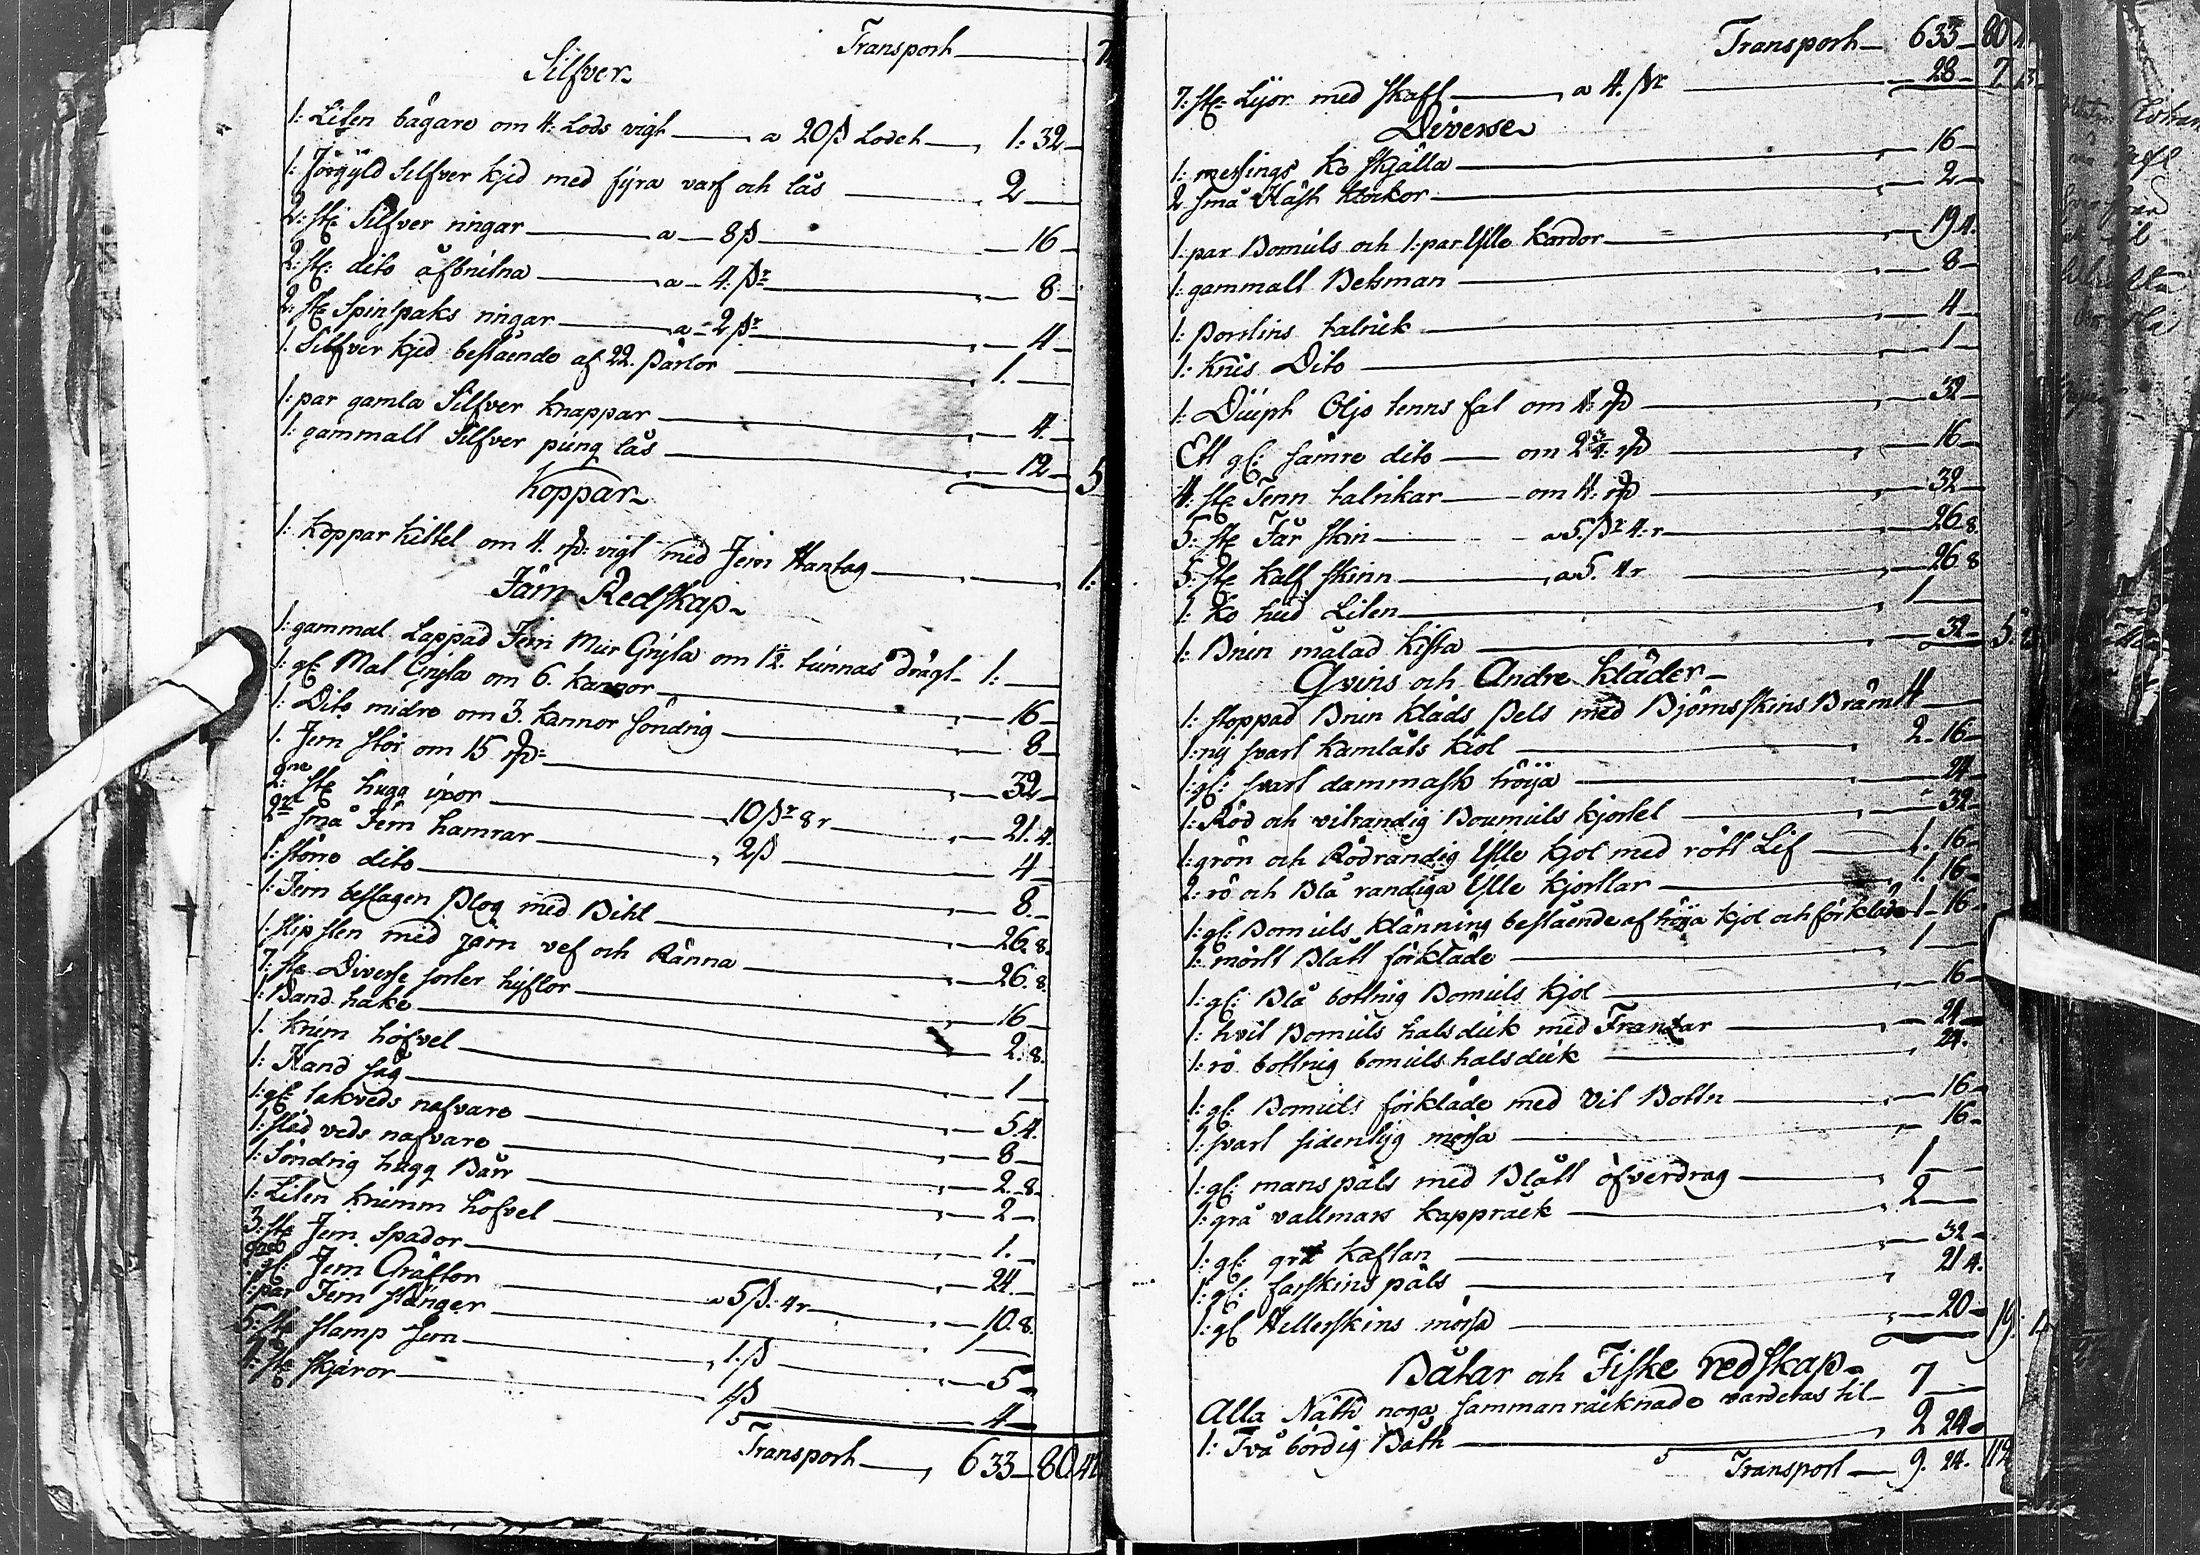 Transport
Silfver
1: Liten bägare om 4: Lods vigt a 20ß Lodet 1: 32
1: Förgÿld Silfver kjed med fÿra varf och lås 2
2: st: Silfver ringar a 8ß 16
2: st: dito afbrutna a 4: ßr 8
2: st: Spinspaks ringar a 2ßr 4
1. Silfver kjed bestående af 22. pärlor 1.
1: par gamla Silfver knappar 4.
1: gammalt Silfver pung lås 12 5
Koppar
1: Koppar kittel om 4. vigt med Jern Hantag 1:
Järn Redskap
1: gammal Lappad Jern Mur Grÿta om 1½ tunnas drägt 1:
1: gl: Mal Grÿta om 6. kannor 16
1: Dito midre om 3. kannor söndrig 8
1. Jern stör om 15 32
2: st: hugg ÿxor 10ßr 8r 21. 4.
2: små Jern hamrar 2ß 4
1: större dito 8.
1: Jern beslagen Plog med Bihl 26. 8.
1: slip sten med järn vef och Ränna 26. 8.
7: st: Diverse sorter hÿflor 16
1: Band hake 2. 8.
1. krum höfvel 1
1: Hand såg 5. 4.
1: gl: takveds nafvare 8
1: släd veds nafvare 2. 8.
1: Söndrig hugg Bårr 2
1: Liten krumm höfvel 1.
3: st: Jern spador 24.
gl: Jern Gräftor a 5ß: 4r 10. 8.
1: par Jern stänger 1
5: st: stamp Jern 1. ß 5
4: st: skjäror 1ß 4
Transport 6 33 80. 41
Transport 6 33 80
7: st: Ljor med skaft a 4. ßr 28 7 13
Diverse
1: messings ko skjälla 16
2 små Häst klockor 2
1: par Bomuls och 1: par Ylle kardor 19 4.
1: gammalt Betsman 8
1: porslins talrick 4
1: krus Dito 1
1: Diupt Oljo tenns fat om 4: 32
Ett gl: sämre dito om 2¾ 16
4: st: Tenn talrikar om 4: 32
5: st: Får skin a 5: ßr 4: r 26. 8.
5: st: kalf skinn a 5. 4r 26 8
1: ko hud Liten 1
1: Brun målad kista 32 5.
Qvins och Andre kläder
1: stoppad Brun kläds Pels med Björnskins Bräm 4
1: nÿ svart kamlåts kiol 2. 16
1: gl: svart dammask tröÿa 24
1: Röd och vitrandig Boumuls kjortel 32
1: grön och Rödrandig Ylle kjol med rött Lif 1. 16
2: rö och Blå randiga Ylle kjortlar 1. 16
1: gl: Bomuls klänning bestående af tröÿa kjol och förkläde 1 16
1: mörtt Blått förkläde 1
1: gl: Blå bottnig Bomuls kjol 16
1: hvit Bomuls halsduk med Frantzar 24
1: rö bottnig bomuls halsduk 24.
1: gl: Bomuls förkläde med Vit Bottn 16
1: svart sidentÿg mössa 16
1: gl: manspäls med Blått öfverdrag 1
1: grå vallmars kappråck 2
1: gl: grå kaftan 32
1: gl: farskins päls 21 4.
1: gl: Hellerskins mössa 20 19.
Båtar och Fiske redskap
Alla Näth noga samman räcknade varderas til 7
1: Två bördig Båth 2 24
Transport 9. 24. 112